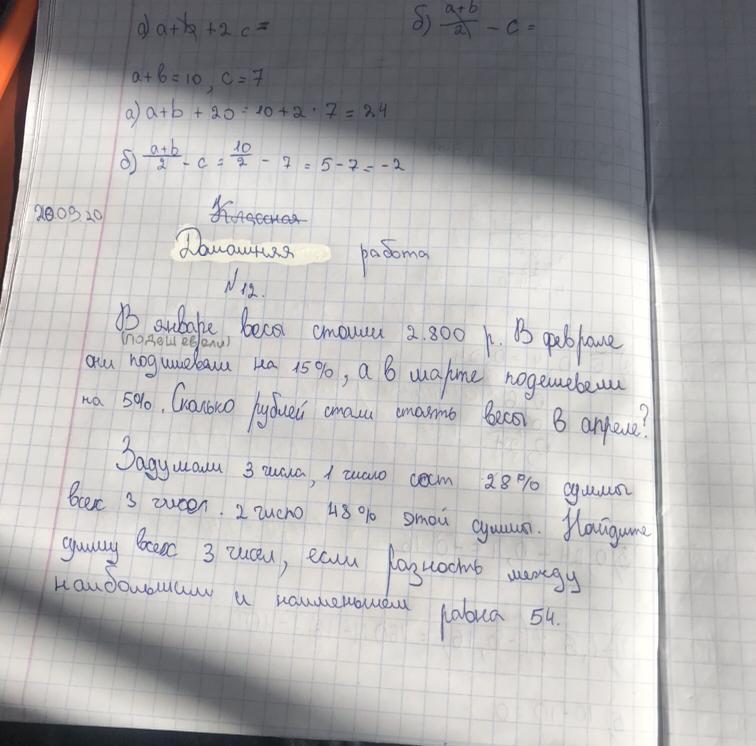 а) a+b +2 c =
б) a+b/2 - c =
a+b=10, c=7
а) a+b + 2c = 10+2·7=24
б) a+b/2 - c = 10/2 - 7 = 5-7=-2
2009.20
Классная
Домашняя работа
№12.
В январе весы стоили 2.800 р. В феврале
(подешевели)
они подишевели на 15%, а в марте подешевели
на 5%. Сколько рублей стали стоять весы в апреле?
Задумали 3 числа, 1 число сост 28% суммы
всех 3 чисел. 2 число 48% этой суммы. Найдите
сумму всех 3 чисел, если разность между
наибольшим и наименьшем равна 54.